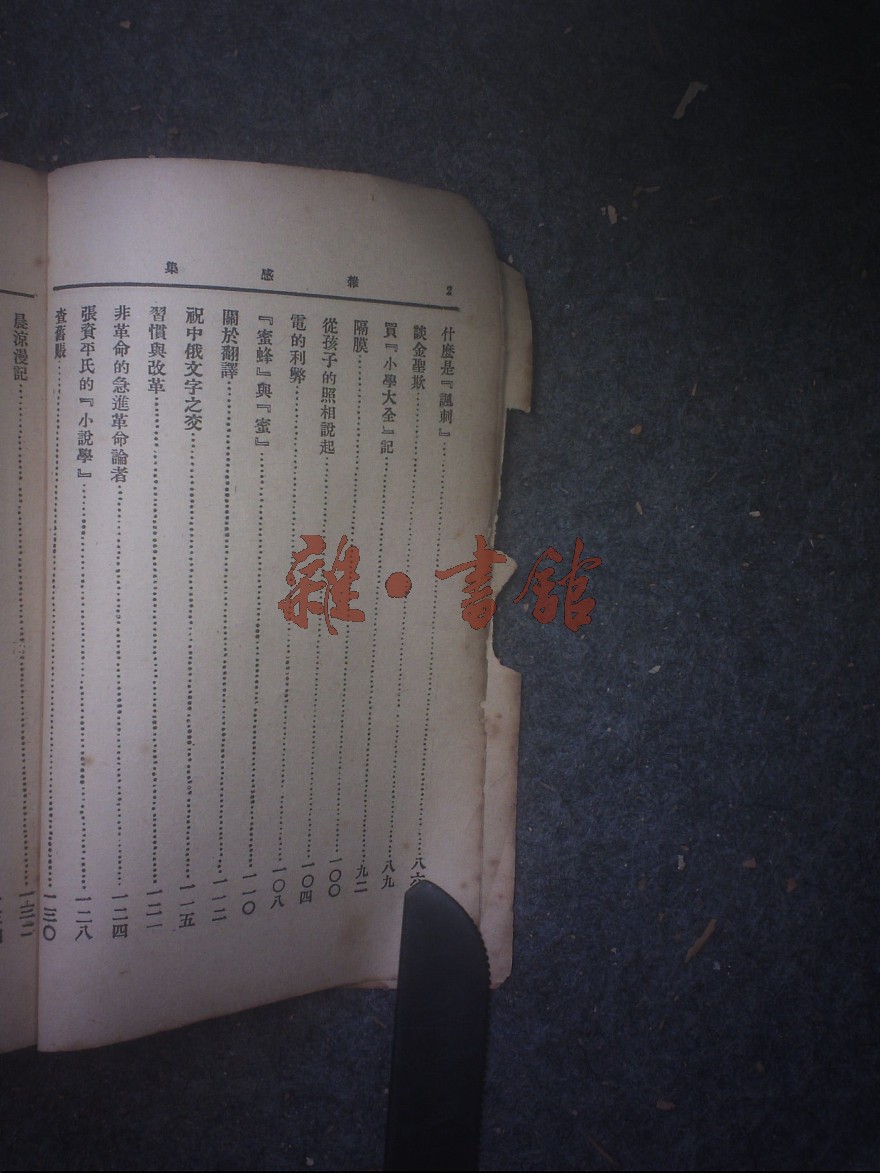 2 雜感集
什麼是『諷刺』
談金聖歎 八六
買『小學大全』記 八九
隔膜 九二
從孩子的照相說起 一〇〇
電的利弊 一〇四
『蜜蜂』與『蜜』 一〇八
關於翻譯 一一〇
祝中俄文字之交 一一二
習慣與改革 一一五
非革命的急進革命論者 一二一
張資平氏的『小說學』 一二四
查舊賬 一二八
晨涼漫記 一三〇
雜·書館